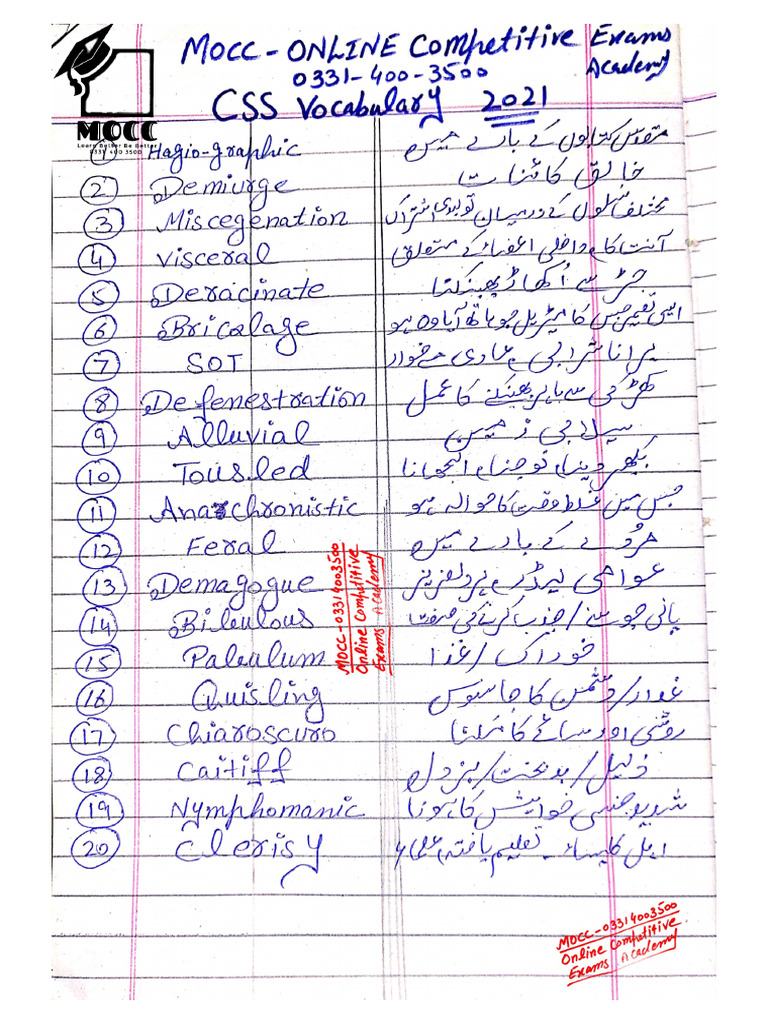 MOCC - ONLINE Competitive Exams Academy
0331-400-3500
CSS Vocabulary 2021
MOCC
Learn Better Be Better
0331 400 3500
1 Hagio-graphic مقدس کتابوں کے بارے میں
2 Demiurge خالق کائنات
3 Miscegenation مختلف نسلوں کے درمیان تولیدی اشتراک
4 Visceral آنت کا، داخلی اعضاء کے متعلق
5 Deracinate جڑ سے اُکھاڑ پھینکنا
6 Bricolage ایسی تعمیر جس کا میٹریل جو ہاتھ آیا وہ ہو
7 SOT پرانا شرابی، عادی مے خوار
8 Defenestration کھڑکی سے باہر پھینکنے کا عمل
9 Alluvial سیلابی زمین
10 Tousled بکھیر دینا، نوچنا، الجھانا
11 Anarchronistic جس میں غلط وقت کا حوالہ ہو
12 Feral مُردے کے بارے میں
13 Demagogue عوامی لیڈر،
14 Bibulous پانی چوسنے / جذب کرنے کی صفت
15 Pabulum خوراک / غذا
16 Quisling غدار / دشمن کا جاسوس
17 Chiaroscuro روشنی اور سائے کا
18 Caitiff ذلیل / بدبخت / بزدل
19 Nymphomanic شدید جنسی خواہش کا ہونا
20 Clerisy اہل کلیساء - تعلیم یافتہ
MOCC-03314003500
Online Competitive
Exams Academy
MOCC-03314003500
Online Competitive
Exams Academy